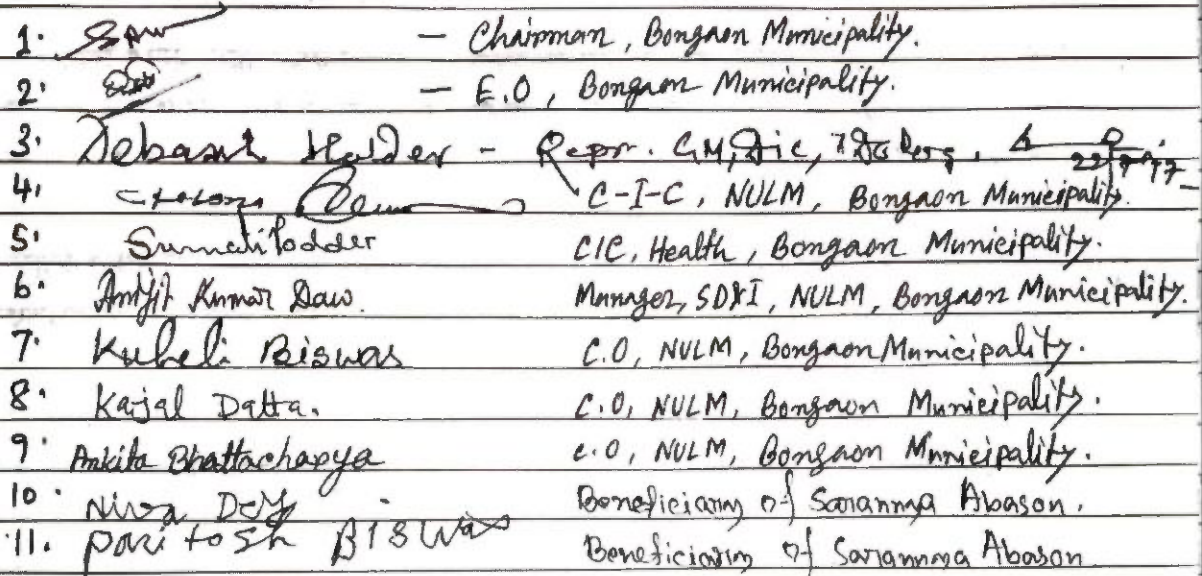 1. – Chairman, Bongaon Municipality.
2. – E.O, Bongaon Municipality.
3. Debasish Halder – Repr. GM, Dic,
4. C-I-C, NULM, Bongaon Municipality.
5. Sumati Podder CIC, Health, Bongaon Municipality.
6. Kumar Daw. Manager, SD&I, NULM, Bongaon Municipality.
7. Kuheli Biswas C.O, NULM, Bongaon Municipality.
8. Kajal Datta. C.O, NULM, Bongaon Municipality.
9. Ankita Bhattacharya C.O, NULM, Bongaon Municipality.
10. Niva Dey Beneficiary of Abason.
11. Paritosh BISWas Beneficiary of Abason